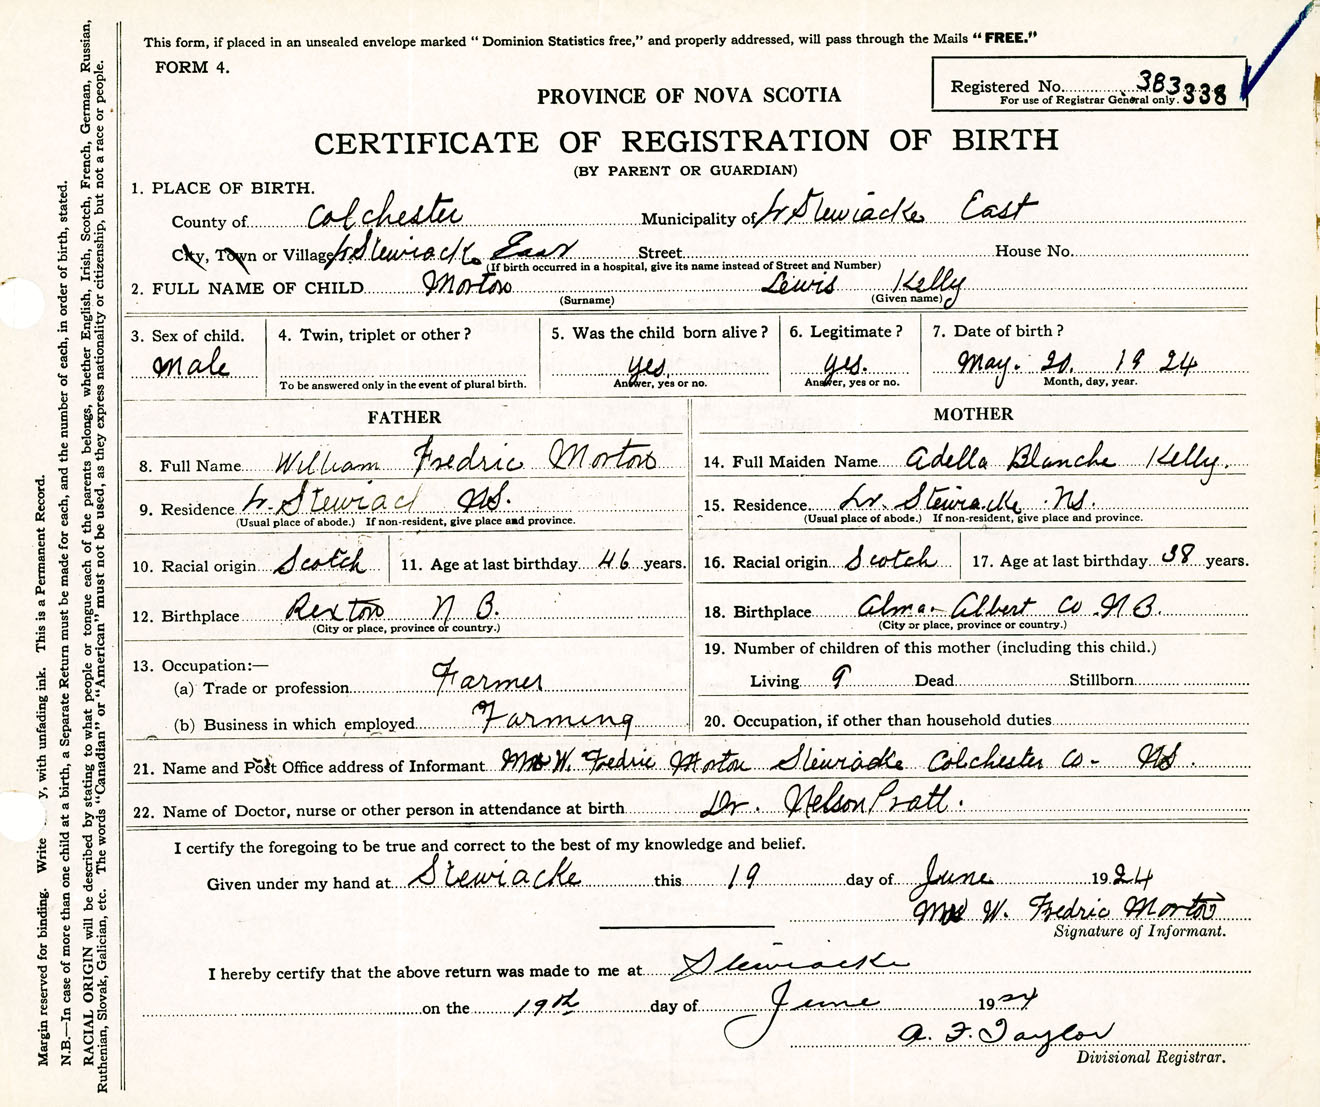 This form, if placed in an unsealed envelope marked " Dominion Statistics free," and properly addressed, will pass through the Mails "FREE."
FORM 4.
Registered No. 383
For use of Registrar General only. 338
PROVINCE OF NOVA SCOTIA
CERTIFICATE OF REGISTRATION OF BIRTH
(BY PARENT OR GUARDIAN)
1. PLACE OF BIRTH.
County of Colchester Municipality of Lr Stewiacke East
City, Town or Village Lr. Stewiacke East Street House No.
(If birth occurred in a hospital, give its name instead of Street and Number)
2. FULL NAME OF CHILD Morton Lewis Kelly
(Surname) (Given name)
3. Sex of child. 4. Twin, triplet or other? 5. Was the child born alive? 6. Legitimate? 7. Date of birth?
Male yes. yes. May. 20. 1924
To be answered only in the event of plural birth. Answer, yes or no. Answer, yes or no. Month, day, year.
FATHER MOTHER
8. Full Name William Fredric Morton 14. Full Maiden Name Adella Blanche Kelly.
9. Residence Lr. Stewiack NS. 15. Residence Lr. Stewiacke NS.
(Usual place of abode.) If non-resident, give place and province. (Usual place of abode.) If non-resident, give place and province.
10. Racial origin Scotch 11. Age at last birthday 46 years. 16. Racial origin Scotch 17. Age at last birthday 38 years.
12. Birthplace Rexton N B. 18. Birthplace Alma- Albert Co N B.
(City or place, province or country.) (City or place, province or country.)
19. Number of children of this mother (including this child.)
13. Occupation:—
(a) Trade or profession Farmer Living 9 Dead Stillborn
(b) Business in which employed Farming 20. Occupation, if other than household duties
21. Name and Post Office address of Informant Mrs W. Fredric Morton Stewiacke Colchester Co- NS.
22. Name of Doctor, nurse or other person in attendance at birth Dr. Nelson Pratt.
I certify the foregoing to be true and correct to the best of my knowledge and belief.
Given under my hand at Stewiacke this 19 day of June 1924
Mrs W. Fredric Morton
Signature of Informant.
I hereby certify that the above return was made to me at Stewiacke
on the 19th day of June 1924
A. F. Taylor
Divisional Registrar.
Margin reserved for binding. Write y, with unfading ink. This is a Permanent Record.
N.B.—In case of more than one child at a birth, a Separate Return must be made for each, and the number of each, in order of birth, stated.
RACIAL ORIGIN will be described by stating to what people or tongue each of the parents belongs, whether English, Irish, Scotch, French, German, Russian,
Ruthenian, Slovak, Galician, etc. The words "Canadian" or "American" must not be used, as they express nationality or citizenship, but not a race or people.